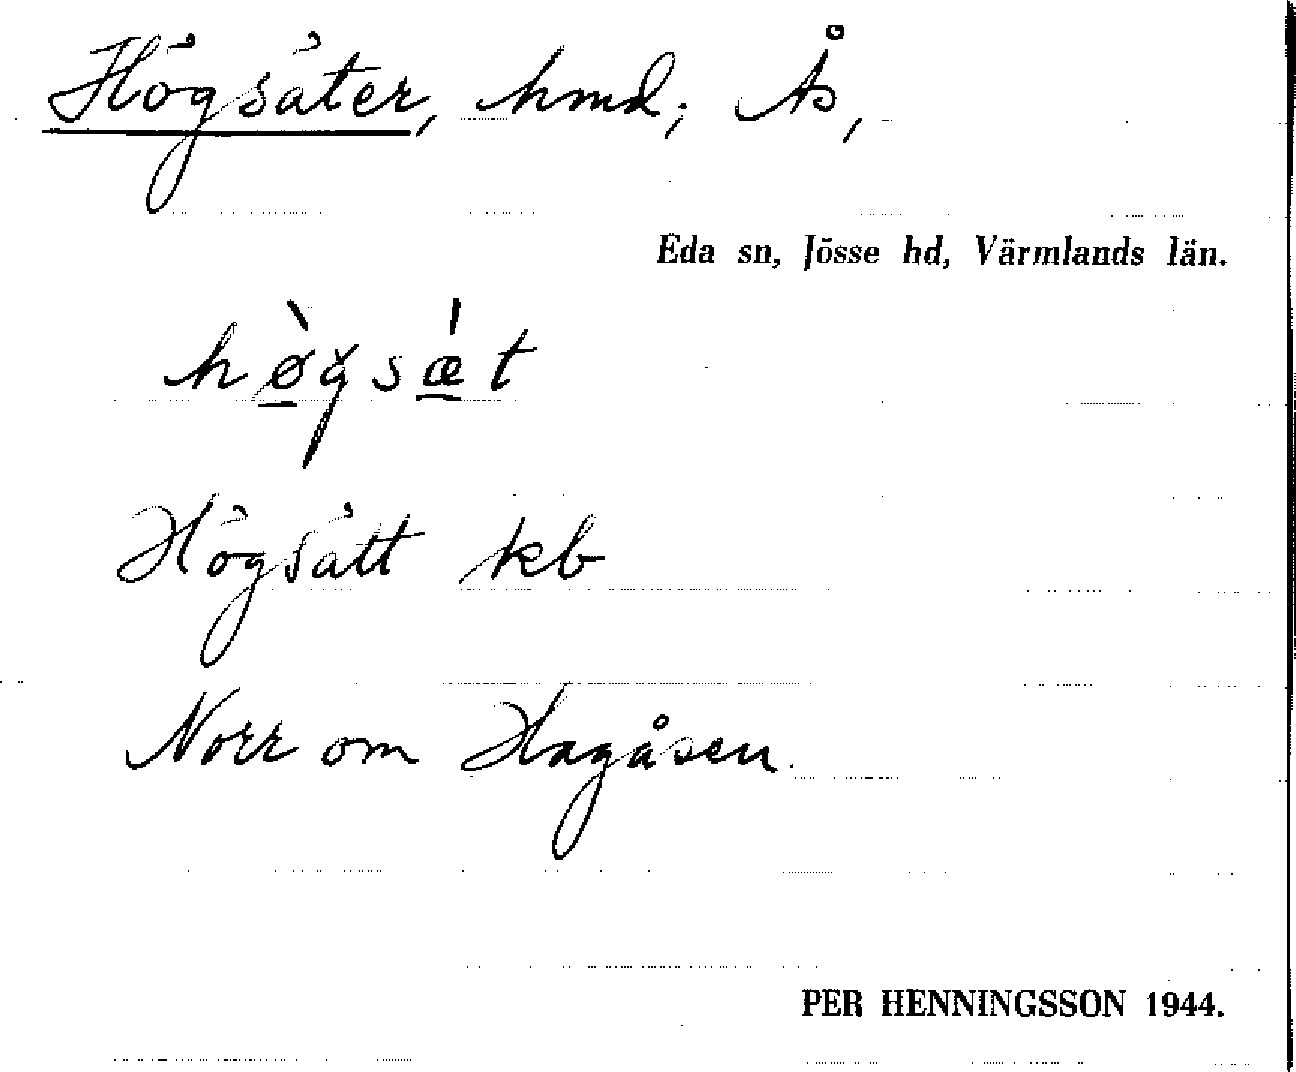 Högsäter, hmd; Ås,
Eda sn, Jösse hd, Värmlands län.
hø̲̀gsǽ̲t
Högsätt kb
Norr om Hagåsen.
PER HENNINGSSON 1944.